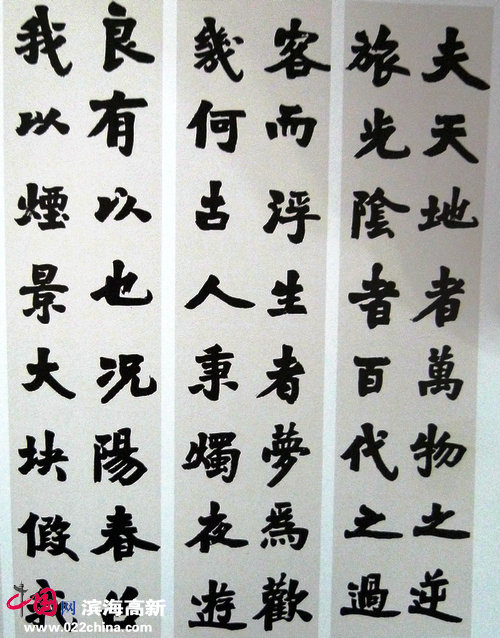 夫天地者萬物之逆
旅光陰者百代之過
客而浮生者夢爲歡
幾何古人秉燭夜遊
良有以也况陽春
我以煙景大块假
中国网 滨海高新
www.022china.com